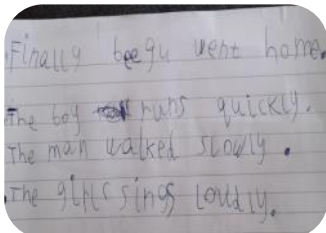 Finally beegu went home.
The boy runs quickly.
The man walked slowly.
The girls sings loudly.